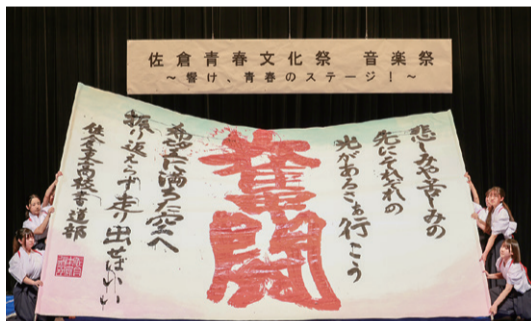 佐倉青春文化祭 音楽祭
～響け、青春のステージ！～
悲しみや苦しみの
先にそれぞれの
光があるさぁ行こう
奮闘
希望に満ちた空へ
振り返えらず走り出せばいい
佐倉東高校書道部